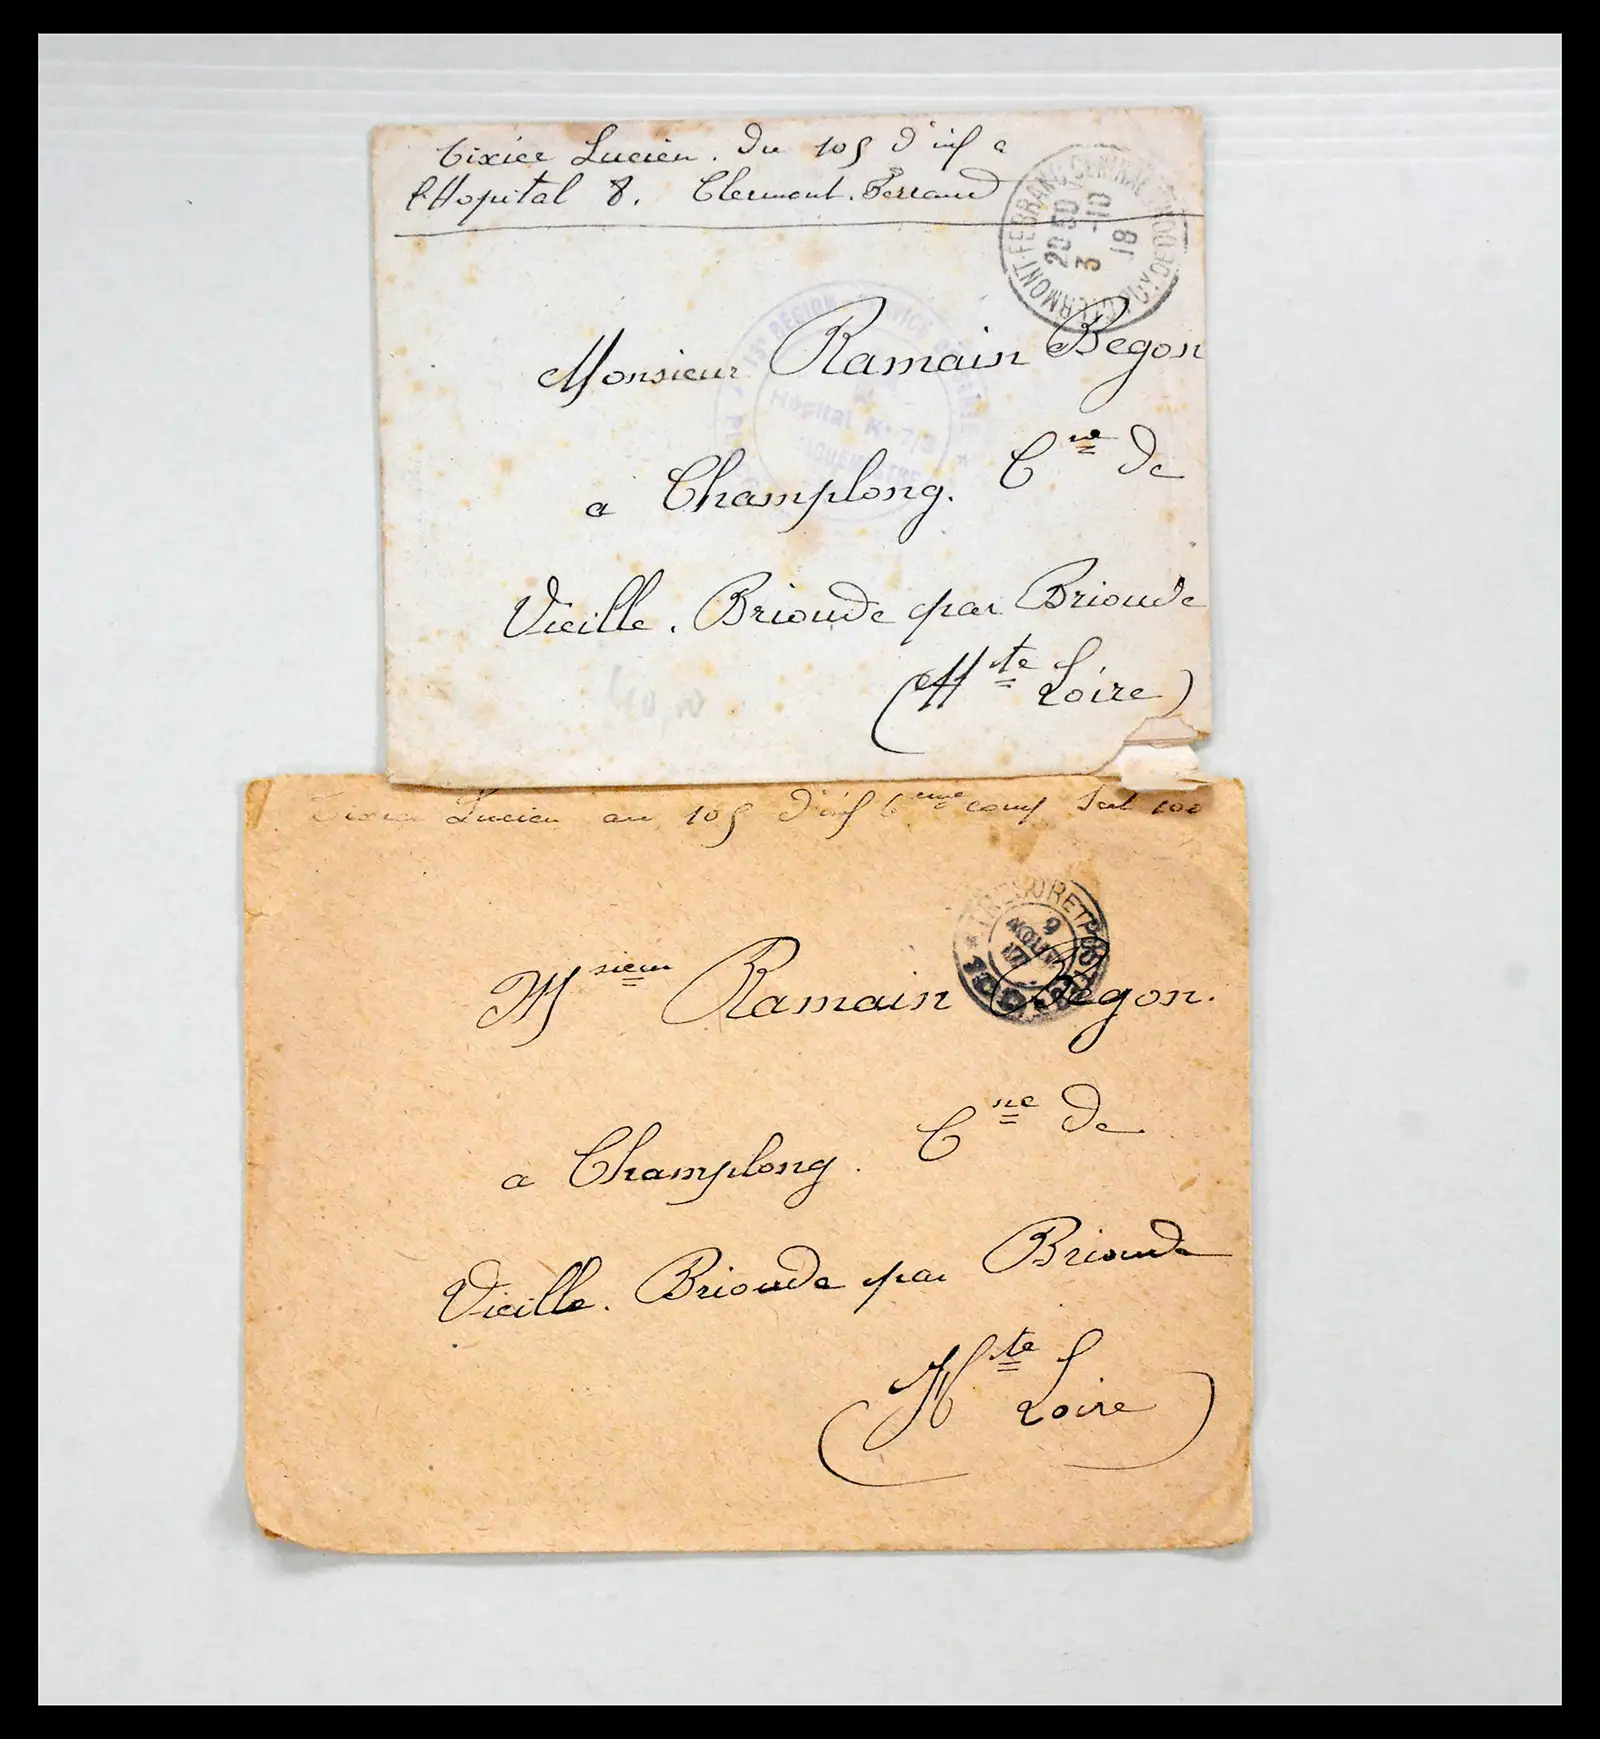 Tixier Lucien. Du 105 d'inf a
l'Hopital 8. Clermont. Ferrand
CLERMONT-FERRAND CENTRAL PUY DE DOME
20 50
3 -10
18
Monsieur Ramain Begon
13e REGION SERVICE
Hopital N° 7/8
a Champlong. Cne de
Vieille. Brioude par Brioude
(Hte Loire)
Tixier Lucien au 105 d'inf 6eme comp Sect 100
TRESOR ET POSTES
9
17
Msieur Ramain Begon.
a Champlong. Cne de
Vieille. Brioude par Brioude
(Hte Loire)